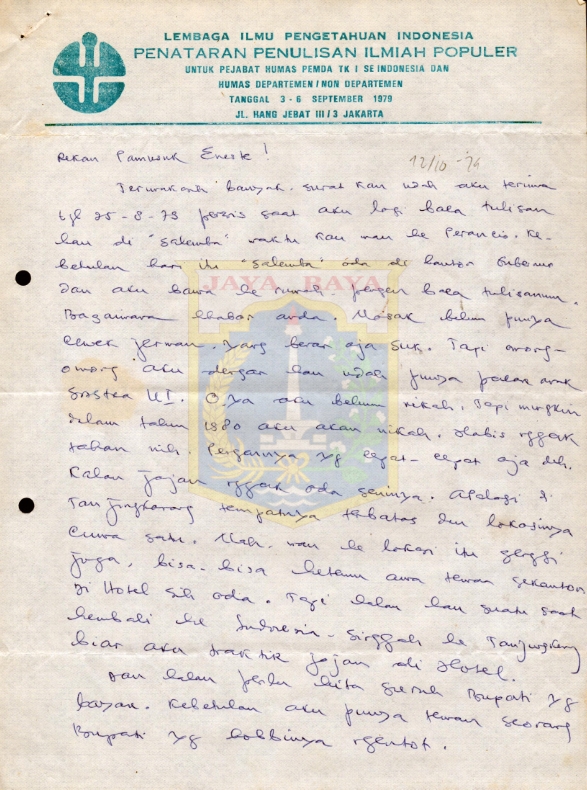 LEMBAGA ILMU PENGETAHUAN INDONESIA
PENATARAN PENULISAN ILMIAH POPULER
UNTUK PEJABAT HUMAS PEMDA TK I SE INDONESIA DAN
HUMAS DEPARTEMEN/NON DEPARTEMEN
TANGGAL 3-6 SEPTEMBER 1979
JL. HANG JEBAT III/3 JAKARTA
Rekan Pamusuk Eneste!
12/10-'79
Terimakasih banyak. Surat kau udah aku terima
tgl 25-8-79 persis saat aku lagi baca tulisan
kau di "Salemba" waktu kau mau ke Perancis. Ke-
betulan hari itu "Salemba" ada di kantor Gubernur
dan aku bawa ke rumah. pengen baca tulisanmu.
JAYA RAYA
Bagaimana khabar anda. Masak belum punya
cewek jerman. Yang bener aja Suk. Tapi omong-
omong aku dengar kau udah punya pacar anak
Sastra UI. O ya aku belum nikah. Tapi mungkin
dalam tahun 1980 aku akan nikah. Habis nggak
tahan nih. Pengennya yg cepat-cepat aja deh.
Kalau jajan nggak ada seninya. Apalagi di
Tanjungkarang tempatnya terbatas dan lokasinya
cuma satu. Nah, mau ke lokasi itu gengsi
juga, bisa-bisa ketemu ama teman sekantor
Di Hotel sih ada. Tapi kalau kau suatu saat
kembali ke Indonesia - Singgah ke Tanjungkarang
biar aku traktir jajan di Hotel.
Dan kalau perlu kita suruh Bupati yg
bayar. Kebetulan aku punya teman seorang
Bupati yg hobbinya ngentot.